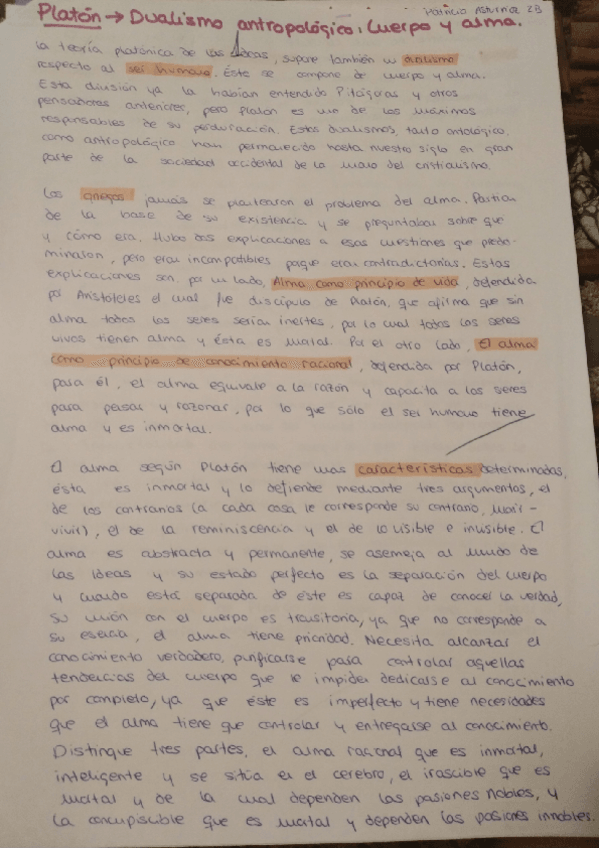 Platón → Dualismo antropológico: Cuerpo y alma.
Patricia Asturias 2B
La teoría platónica de las ideas, supone también un dualismo
respecto al ser humano. Éste se compone de cuerpo y alma.
Esta división ya la habían entendido Pitágoras y otros
pensadores anteriores, pero Platón es uno de los máximos
responsables de su perduración. Estos dualismos, tanto ontológico,
como antropológico han permanecido hasta nuestro siglo en gran
parte de la sociedad occidental de la mano del cristianismo.
Los griegos jamás se plantearon el problema del alma. Partían
de la base de su existencia y se preguntaban sobre que
y cómo era. Hubo dos explicaciones a esas cuestiones que predo-
minaron, pero eran incompatibles porque eran contradictorias. Estas
explicaciones son, por un lado, Alma como principio de vida, defendida
por Aristóteles el cual fue discípulo de Platón, que afirma que sin
alma todos los seres serían inertes, por lo cual todos los seres
vivos tienen alma y ésta es mortal. Por el otro lado, El alma
como principio de conocimiento racional, defendida por Platón,
para él, el alma equivale a la razón y capacita a los seres
para pensar y razonar, por lo que sólo el ser humano tiene
alma y es inmortal.
El alma según Platón tiene unas características determinadas,
ésta es inmortal y lo defiende mediante tres argumentos, el
de los contrarios (a cada cosa le corresponde su contrario, morir-
vivir), el de la reminiscencia y el de lo visible e invisible. El
alma es abstracta y permanente, se asemeja al mundo de
las Ideas y su estado perfecto es la separación del cuerpo
y cuando está separada de éste es capaz de conocer la verdad,
su unión con el cuerpo es transitoria, ya que no corresponde a
su esencia, el alma tiene prioridad. Necesita alcanzar el
conocimiento verdadero, purificarse para controlar aquellas
tendencias del cuerpo que le impiden dedicarse al conocimiento
por completo, ya que éste es imperfecto y tiene necesidades
que el alma tiene que controlar y entregarse al conocimiento.
Distingue tres partes, el alma racional que es inmortal,
inteligente y se sitúa en el cerebro, el irascible que es
mortal y de la cual dependen las pasiones nobles, y
la concupiscible que es mortal y dependen las pasiones innobles.